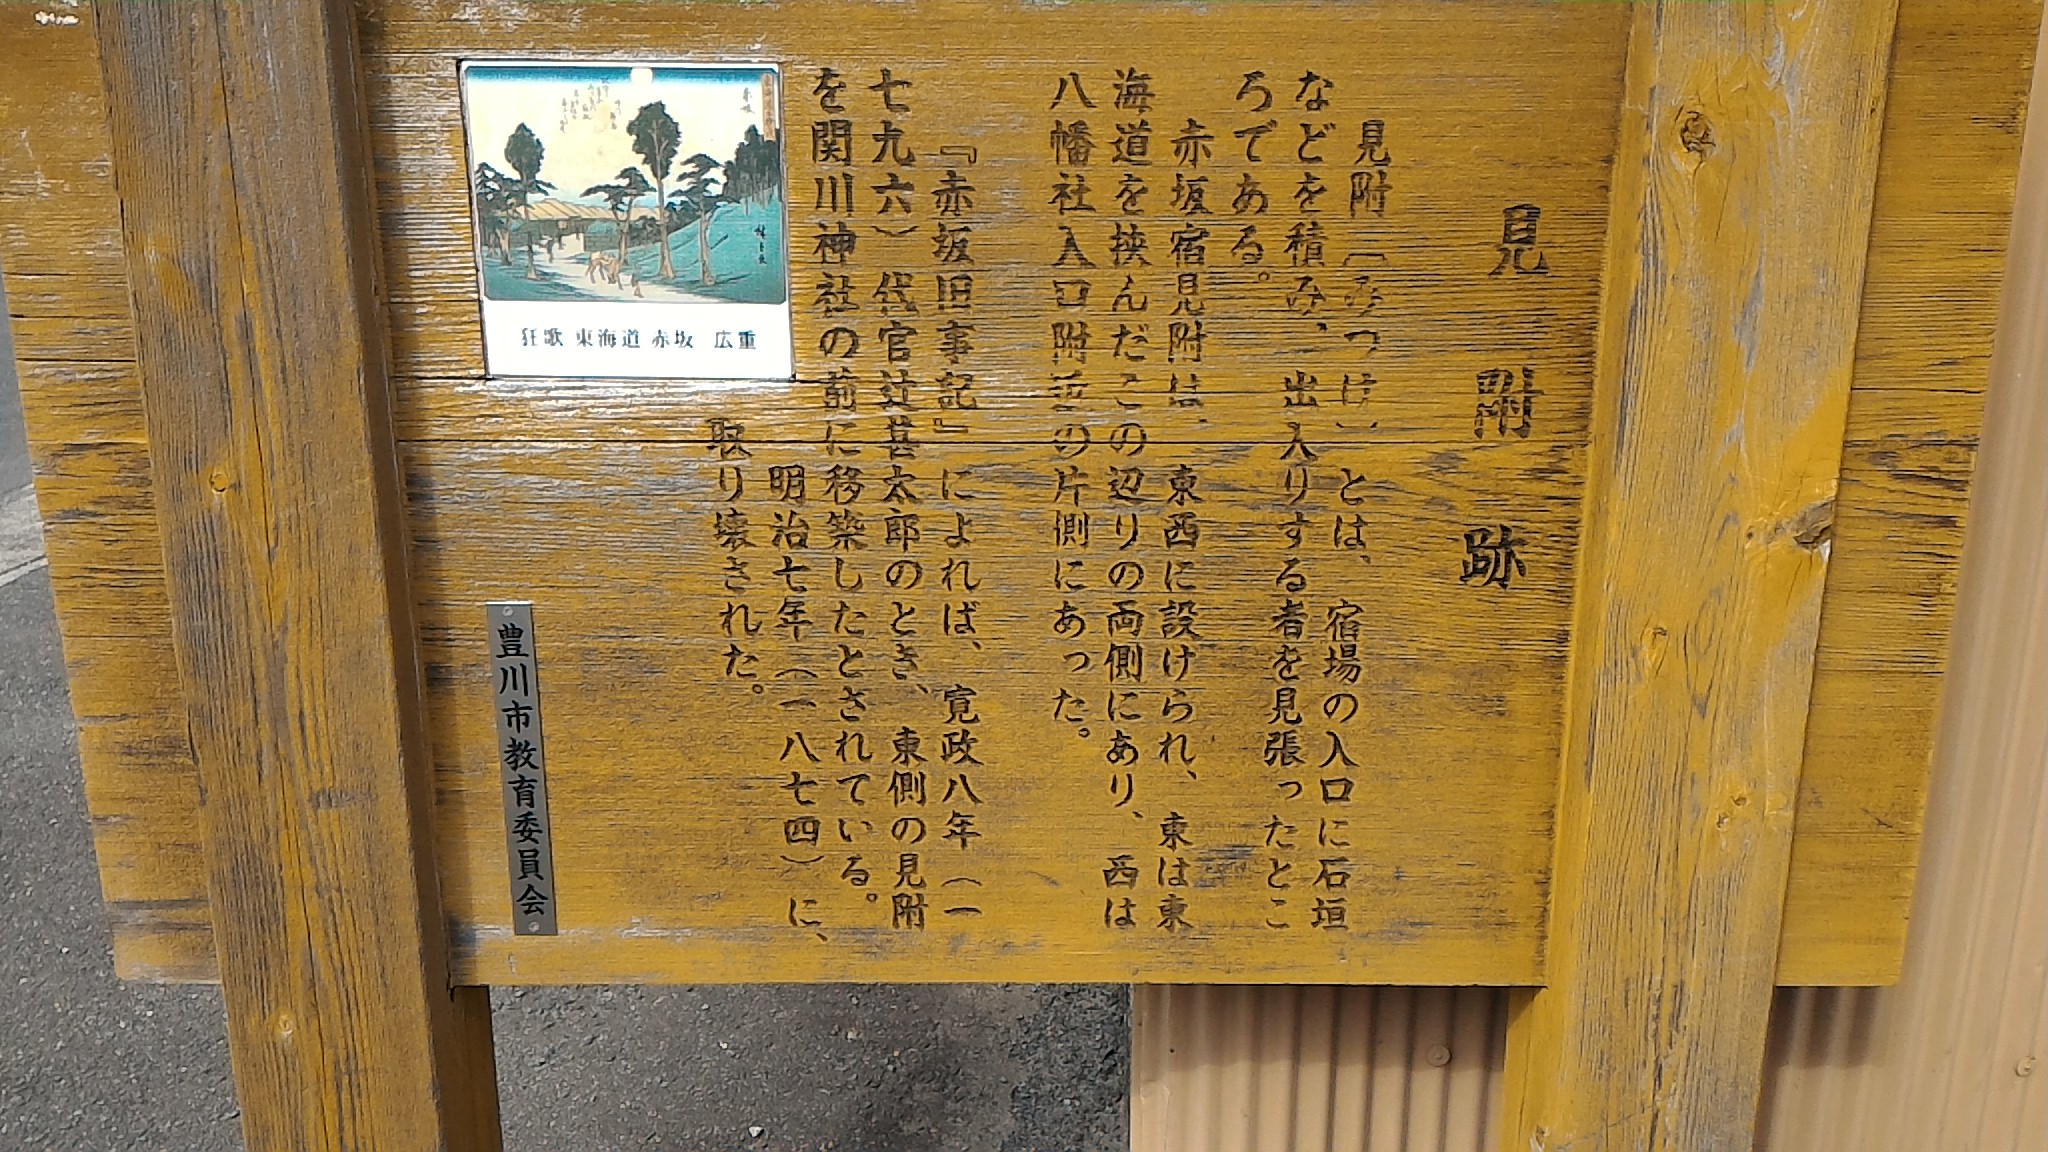 見附跡
見附（みつけ）とは、宿場の入口に石垣
などを積み、出入りする者を見張ったとこ
ろである。
赤坂宿見附は、東西に設けられ、東は東
海道を挟んだこの辺りの両側にあり、西は
八幡社入口附近の片側にあった。
『赤坂旧事記』によれば、寛政八年（一
七九六）代官辻甚太郎のとき、東側の見附
を関川神社の前に移築したとされている。
明治七年（一八七四）に、
取り壊された。
狂歌 東海道 赤坂 広重
豊川市教育委員会